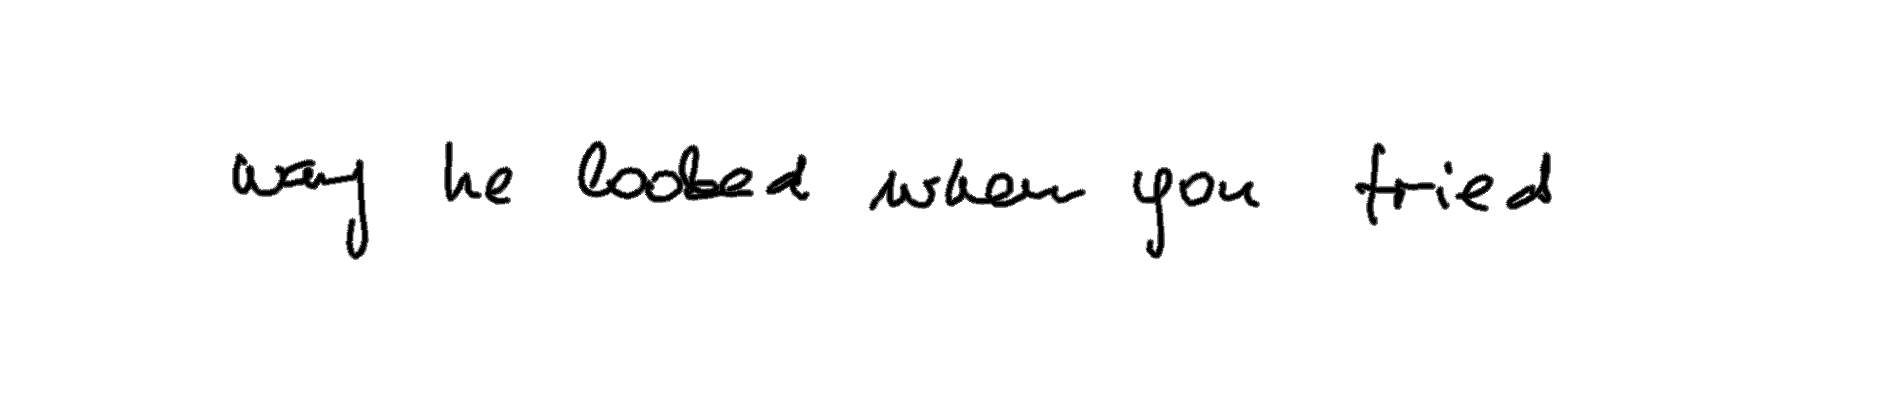 way he looked when you tried